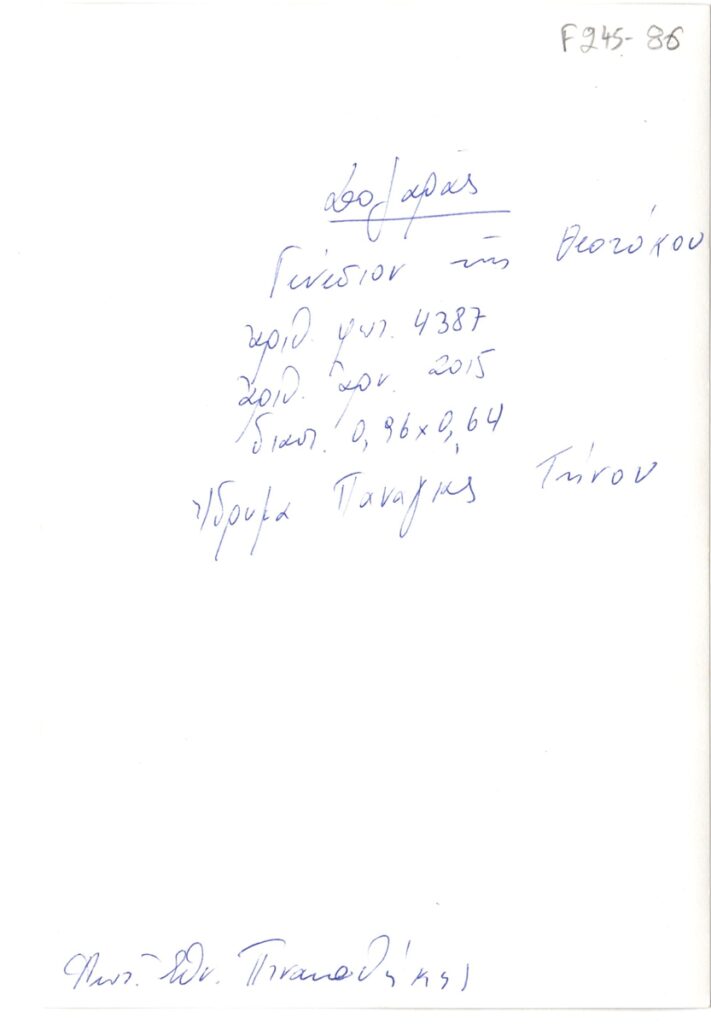 F245-86
Δοξαράς
Γενέσιον τῆς Θεοτόκου
ἀριθ. φωτ. 4387
ἀριθ. ἀρν. 2015
διαστ. 0,96x0,64
Ἵδρυμα Παναγίας Τήνου
Φωτ. Ἐθν. Πινακοθήκης